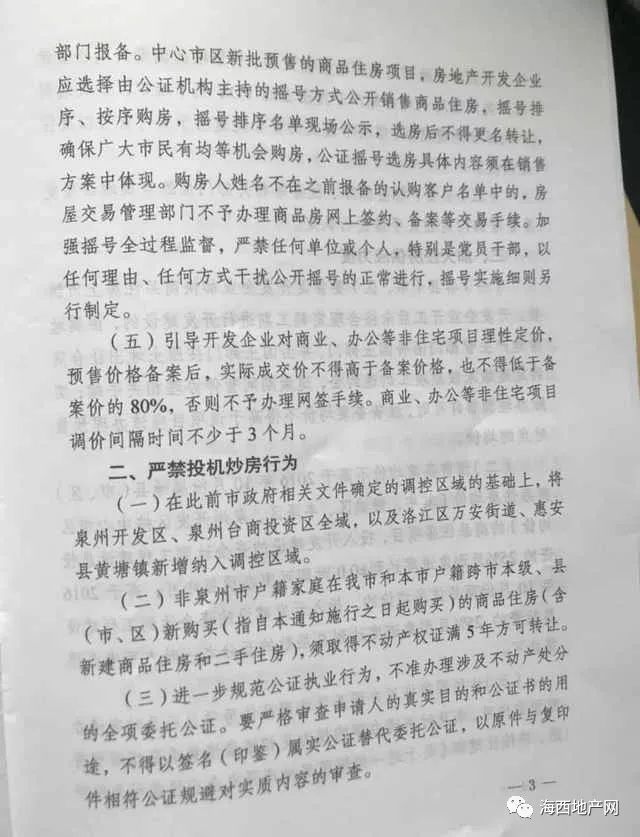 部门报备。中心市区新批预售的商品住房项目，房地产开发企业
应选择由公证机构主持的摇号方式公开销售商品住房，摇号排
序、按序购房，摇号排序名单现场公示，选房后不得更名转让，
确保广大市民有均等机会购房，公证摇号选房具体内容须在销售
方案中体现。购房人姓名不在之前报备的认购客户名单中的，房
屋交易管理部门不予办理商品房网上签约、备案等交易手续。加
强摇号全过程监督，严禁任何单位或个人，特别是党员干部，以
任何理由、任何方式干扰公开摇号的正常进行，摇号实施细则另
行制定。
（五）引导开发企业对商业、办公等非住宅项目理性定价，
预售价格备案后，实际成交价不得高于备案价格，也不得低于备
案价的 80%，否则不予办理网签手续。商业、办公等非住宅项目
调价间隔时间不少于 3 个月。
二、严禁投机炒房行为
（一）在此前市政府相关文件确定的调控区域的基础上，将
泉州开发区、泉州台商投资区全域，以及洛江区万安街道、惠安
县黄塘镇新增纳入调控区域。
（二）非泉州市户籍家庭在我市和本市户籍跨市本级、县
（市、区）新购买（指自本通知施行之日起购买）的商品住房（含
新建商品住房和二手住房），须取得不动产权证满 5 年方可转让。
（三）进一步规范公证执业行为，不准办理涉及不动产处分
的全项委托公证。要严格审查申请人的真实目的和公证书的用
途，不得以签名（印鉴）属实公证替代委托公证，以原件与复印
件相符公证规避对实质内容的审查。
— 3 —
海西地产网